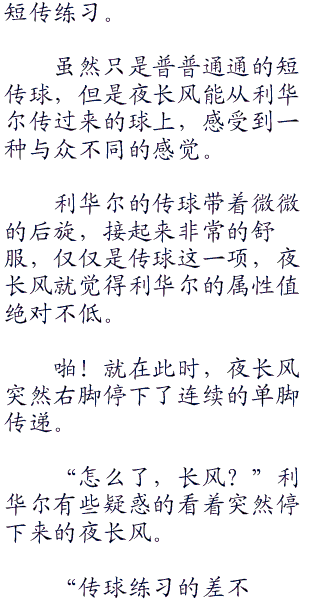 短传练习。
虽然只是普普通通的短
传球，但是夜长风能从利华
尔传过来的球上，感受到一
种与众不同的感觉。
利华尔的传球带着微微
的后旋，接起来非常的舒
服，仅仅是传球这一项，夜
长风就觉得利华尔的属性值
绝对不低。
啪！就在此时，夜长风
突然右脚停下了连续的单脚
传递。
“怎么了，长风？”利
华尔有些疑惑的看着突然停
下来的夜长风。
“传球练习的差不